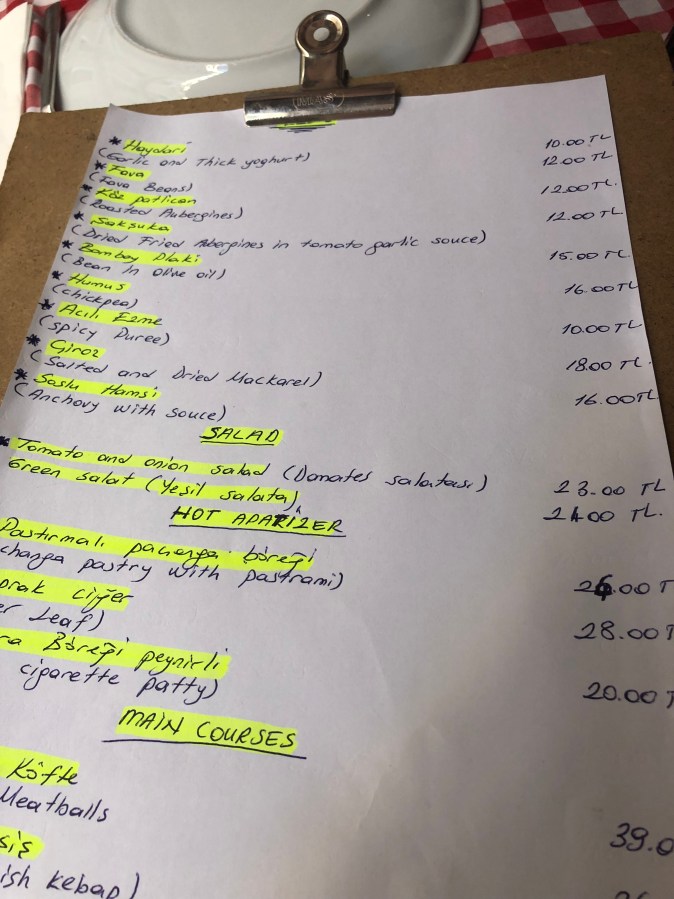 * Haydari 10.00 TL
(Garlic and Thick yoghurt) 12.00 TL
* Fava
(Fava Beans) 12.00 TL.
* Köz patlican
(Roasted Aubergines) 12.00 TL
* Saksuka
(Dried Fried Abergines in tomato garlic souce) 15.00 TL
* Bombay Plaki
(Bean In Olive oil) 16.00 TL
* Humus
(chickpea) 10.00 TL
* Acılı Ezme
(Spicy Puree) 18.00 TL
* Giroz
(Salted and Dried Mackarel) 16.00 TL
* Soslu Hamsi
(Anchovy with souce)
SALAD
* Tomato and onion salad (Domates salatası) 23.00 TL
Green salat (Yeşil salata) 24.00 TL.
HOT APARİZER
Pastırmalı pachanga böreği
changa pastry with pastrami) 26.00 T
prak ciğer 28.00 T
er Leaf)
ra Böreği peynirli 20.00 T
cigarette patty)
MAIN COURSES
Köfte
Meatballs 39.0
siş
ish kebap)